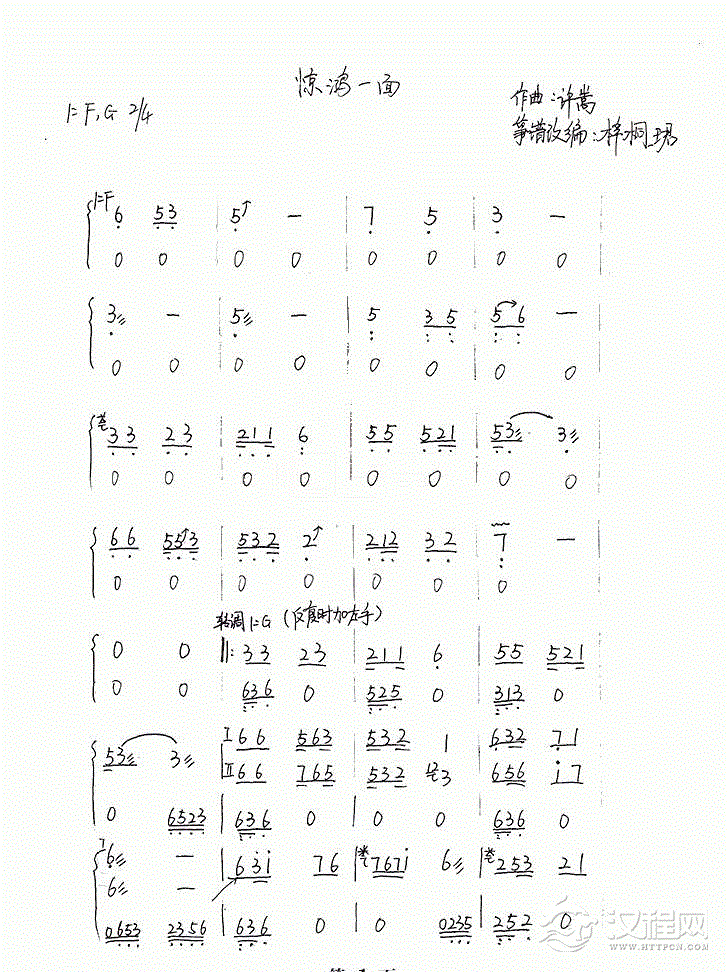 惊鸿一面
1=F,G 2/4
作曲:许嵩
筝谱改编:梓桐珺
1=F
6 53 5 — 7 5 3 —
0 0 0 0 0 0 0 0
3 — 5 — 5 35 56 —
0 0 0 0 0 0 0 0
33 23 211 6 55 521 53 3
0 0 0 0 0 0 0 0
66 553 532 2 212 32 7 —
0 0 0 0 0 0 0
转调1=G (反复时加左手)
0 0 ‖: 33 23 211 6 55 521
0 0 636 0 525 0 313 0
53 3 I 66 563 532 1 632 71
II 66 765 532 3 656 i7
0 6523 636 0 0 0 636 0
I 6 — 63i 76 767i 6 253 21
6 —
0653 2356 636 0 0 0235 252 0
汉程网
WWW.HTTPCN.COM